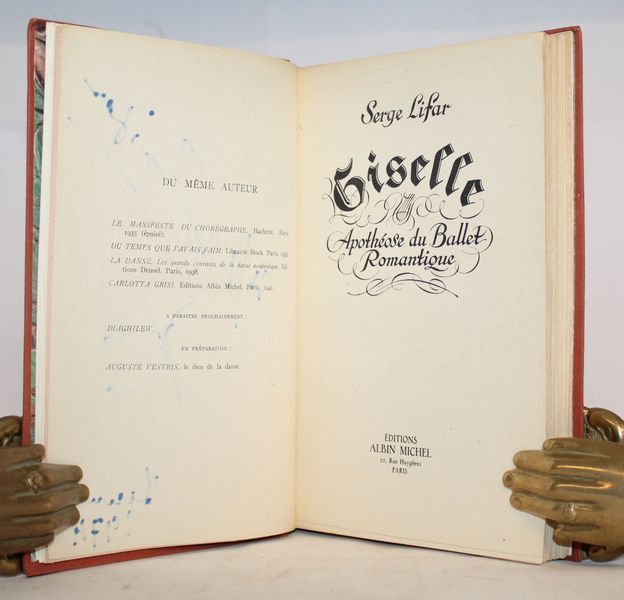 DU MÊME AUTEUR
LE MANIFESTE DU CHORÉGRAPHE. Hachette. Paris,
1935 (épuisé).
DU TEMPS QUE J'AVAIS FAIM. Librairie Stock. Paris,
LA DANSE. Les grands courants de la danse académique. Edi-
tions Denoël. Paris, 1938.
CARLOTTA GRISI. Editions Albin Michel. Paris, 1941.
A PARAITRE PROCHAINEMENT :
DIAGHILEW.
EN PRÉPARATION :
AUGUSTE VESTRIS, le dieu de la danse.
Serge Lifar
Giselle
Apothéose du Ballet
Romantique
ÉDITIONS
ALBIN MICHEL
22, Rue Huyghens
PARIS